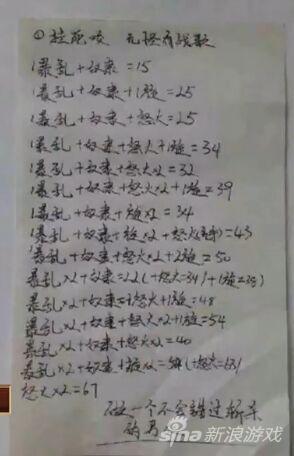 暴乱+奴隶=15
1暴乱+奴隶+1旋=25
1暴乱+奴隶+怒火=25
1暴乱+奴隶+怒火+1旋=34
1暴乱+奴隶+怒火×2=32
1暴乱+奴隶+怒火×2+1旋=39
1暴乱+奴隶+旋×2=34
1暴乱+奴隶+旋×2+怒火=43
1暴乱+奴隶+怒火×2+2旋=50
暴乱×2+奴隶=22(+怒火=34)(+1旋=38)
暴乱×2+奴隶+怒火+1旋=48
暴乱×2+奴隶+怒火×2+1旋=54
暴乱×2+奴隶+怒火×2=40
暴乱×2+奴隶+旋×2=(+怒火=63)
怒火×2=67
做一个不会错过斩杀
的
sina新浪游戏